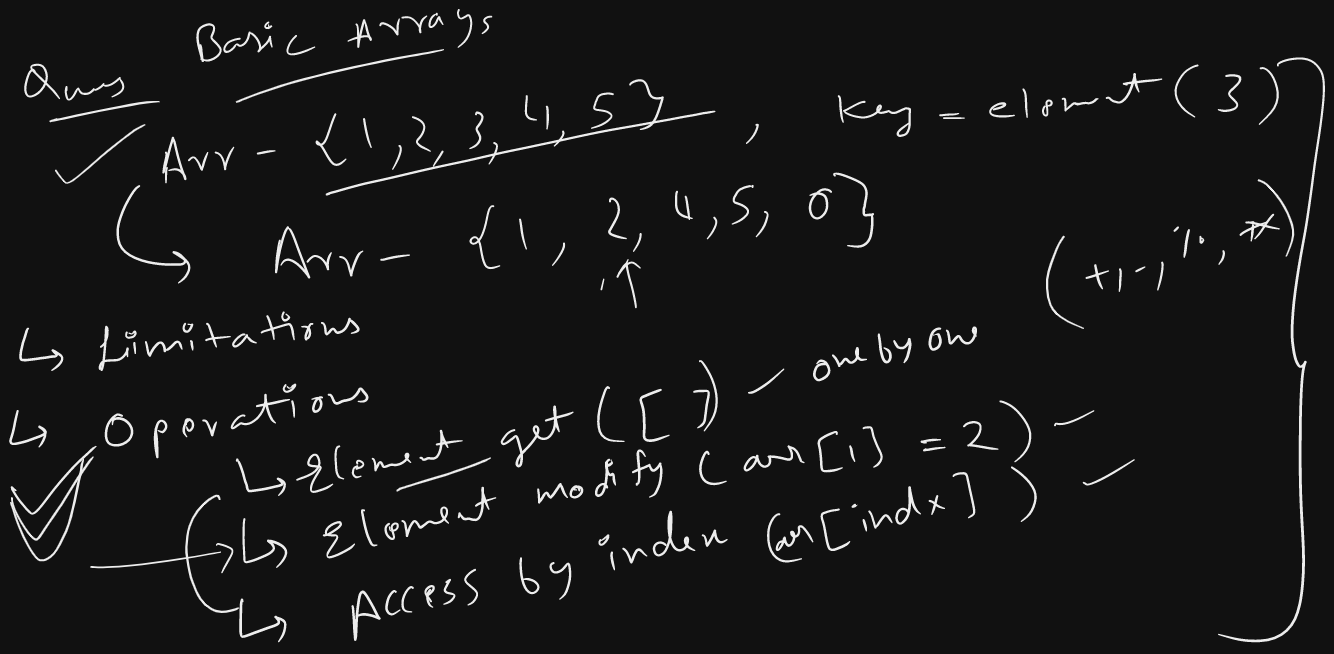 Basic Arrays
Ques
Arr - {1,2,3,4,5} , Key = element (3)
Arr - {1, 2, 4,5, 0}
(+,-,%,*)
Limitations
Operations
Element get ([ ]) - one by one
Element modify (arr[1] = 2) -
Access by index (arr[indx]) -